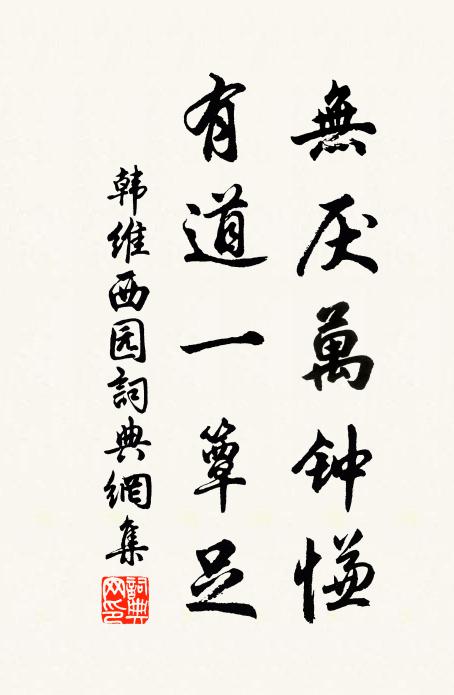 無厌萬钟慊
有道一簞足
韩维西园詞典網集
詞典网印